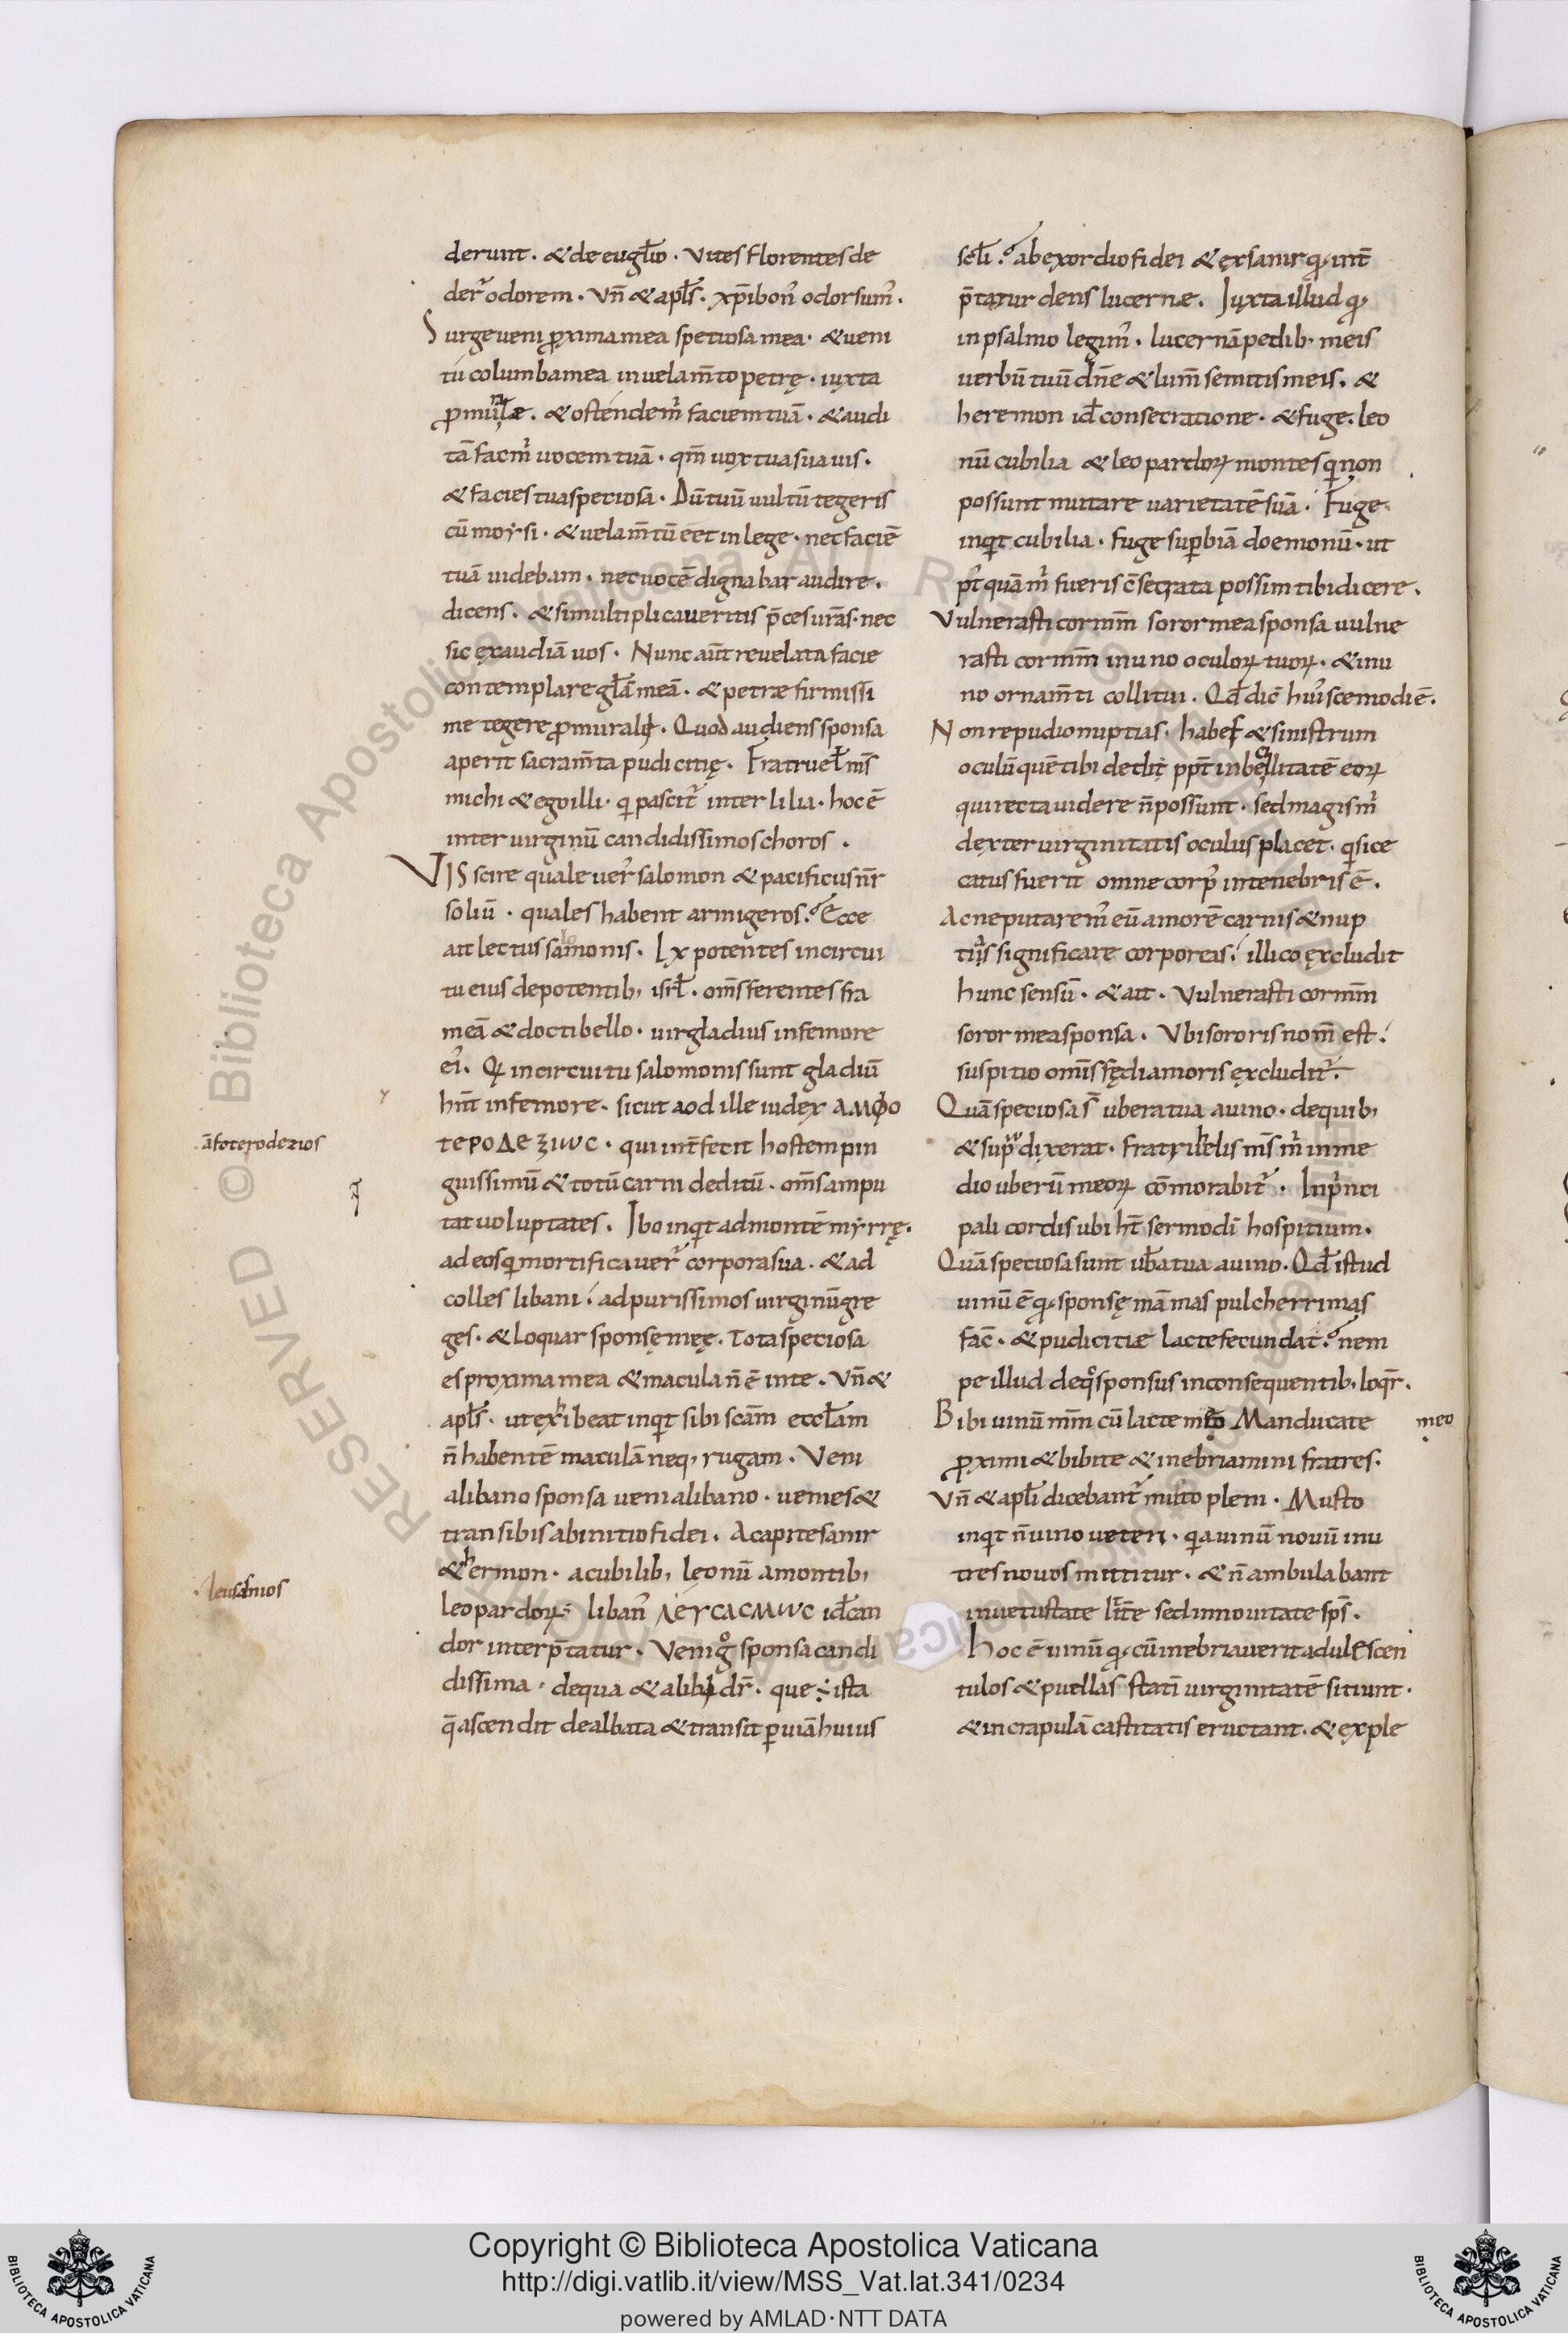 derunt. & de eugl̄io. Vites florentes de
der̄ odorem. Vn̄ & apl̄s. xp̄i bon᾽ odor sum᾽.
Surge ueni ꝓxima mea spetiosa mea. & ueni
tu columba mea in uelam̄to petrę. iuxta
ꝓmuralæ. & ostende m̓ faciem tuā. & audi
tā fac m̓ uocem tuā. qm̄ uox tua suauis.
& facies tua speciosa. Dū tuū uultū tegeris
cū moysi. & uelam̄tū eēt in lege. nec faciē
tuā uidebam. nec uocē dignabar audire.
dicens. & si multiplicaueritis p̄ces urās. nec
sic exaudiā uos. Nunc aūt reuelata facie
contemplare gl̄ā meā. & petræ firmissi
me tegere ꝓmurali. Quod audiens sponsa
aperit sacram̄ta pudicitię. Fratruel̄ m̄s
michi & ego illi. qui pascit᾽ inter lilia. hoc ē
inter uirginū candidissimos choros.
VIS scire quale uer᾽ salomon & pacificus nr̄
soliū. quales habent armigeros? Ecce
ait lectus salomonis. Lx potentes in circui
tu eius de potentib; isrl̄. om̄s ferentes fra
meā & docti bello. uir gladius in femore
ei᾽. Qui in circuitu salomonis sunt gladiū
hn̄t in femore. sicut aod ille iudex ΑΜΦΟ
ΤΕΡΟΔΕΞΙωC. qui int̄fecit hostem pin
guissimū & totū carni deditū. om̄s ampu
tat uoluptates. Ibo inquit ad montē myrrę.
ad eos qui mortificauer̄ corpora sua. & ad
colles libani. ad purissimos uirginū gre
ges. & loquar sponsę meę. Tota speciosa
es proxima mea & macula n̄ ē in te. Vn̄ &
apl̄s. ut exhibeat inquit sibi scām eccl̄am
n̄ habentē maculā neq; rugam. Veni
a libano sponsa ueni a libano. uenies &
transibis ab initio fidei. A capite sanir
& hermon. a cubilib; leonū a montib;
leopardoꝝ. liban᾽ ΛΕΥCΑCΜωC id̄ can
dor interp̄tatur. Veni gͦ sponsa candi
dissima. de qua & alibi dr̄. que ÷ ista
q̄ ascendit dealbata & transit ꝑ uiā huius
āfoterodezios
leucasmos
scl̄i? ab exordio fidei & ex sanir quod int̄
p̄tatur dens lucernæ. Iuxta illud quod
in psalmo legim᾽. lucernā pedib; meis
uerbū tuū dn̄e & lum̄ semitis meis. &
heremon id̄ consecratione. & fuge. leo
nū cubilia & leopardoꝝ montes qui non
possunt mutare uarietatē suā. Fuge
inquit cubilia. fuge suꝑbiā doemonū. ut
pt̄ quā m̓ fueris c̄secrata possim tibi dicere.
Vulnerasti cor mm̄ soror mea sponsa uulne
rasti cor mm̄ in uno oculoꝝ tuoꝝ. & in u
no ornam̄ti colli tui. Qd̄ dic̄ hui᾽scemodi ē.
Non repudio nuptias. habes & sinistrum
oculū quē tibi dedi ppt̄ inbecillitatē eoꝝ
qui recta uidere n̄ possunt. sed magis m̓
dexter uirginitatis oculus placet. qui si ce
catus fuerit omne corp᾽ in tenebris ē.
Ac ne putarem᾽ eū amorē carnis & nup
tias significare corporeas. illico excludit
hunc sensū. & ait. Vulnerasti cor mm̄
soror mea sponsa. Vbi sororis nom̄ est.
suspitio om̄is fędi amoris excludit᾽.
Quā speciosa s̄ ubera tua a uino. de quib;
& supra dixerat. fratruelis m̄s m̓ in me
dio uberū meoꝝ cōmorabit᾽. In princi
pali cordis ubi h̄t sermo dī hospitium.
Quā speciosa sunt ub̄a tua a uino. Qd̄ istud
uinū ē quod sponsę māmas pulcherrimas
fac̄. & pudicitiæ lacte fecundat? nem
pe illud de quo sponsus in consequentib; loqr̄.
Bibi uinū mm̄ cū lacte Manducate
meo
ꝓximi & bibite & inebriamini fratres.
Vn̄ & apl̄i dicebant᾽ musto pleni. Musto
inquit n̄ uino ueteri. quia uinū nouū in u
tres nouos mittitur. & n̄ ambulabant
in uetustate lr̄ē sed in nouitate sps̄.
Hoc ē uinū quod cū inebriauerit adulescen
tulos & puellas statī uirginitatē sitiunt.
& in crapulā castitatis eructant. & exple
Copyright © Biblioteca Apostolica Vaticana
http://digi.vatlib.it/view/MSS_Vat.lat.341/0234
powered by AMLAD·NTT DATA
BIBLIOTECA APOSTOLICA VATICANA
BIBLIOTECA APOSTOLICA VATICANA